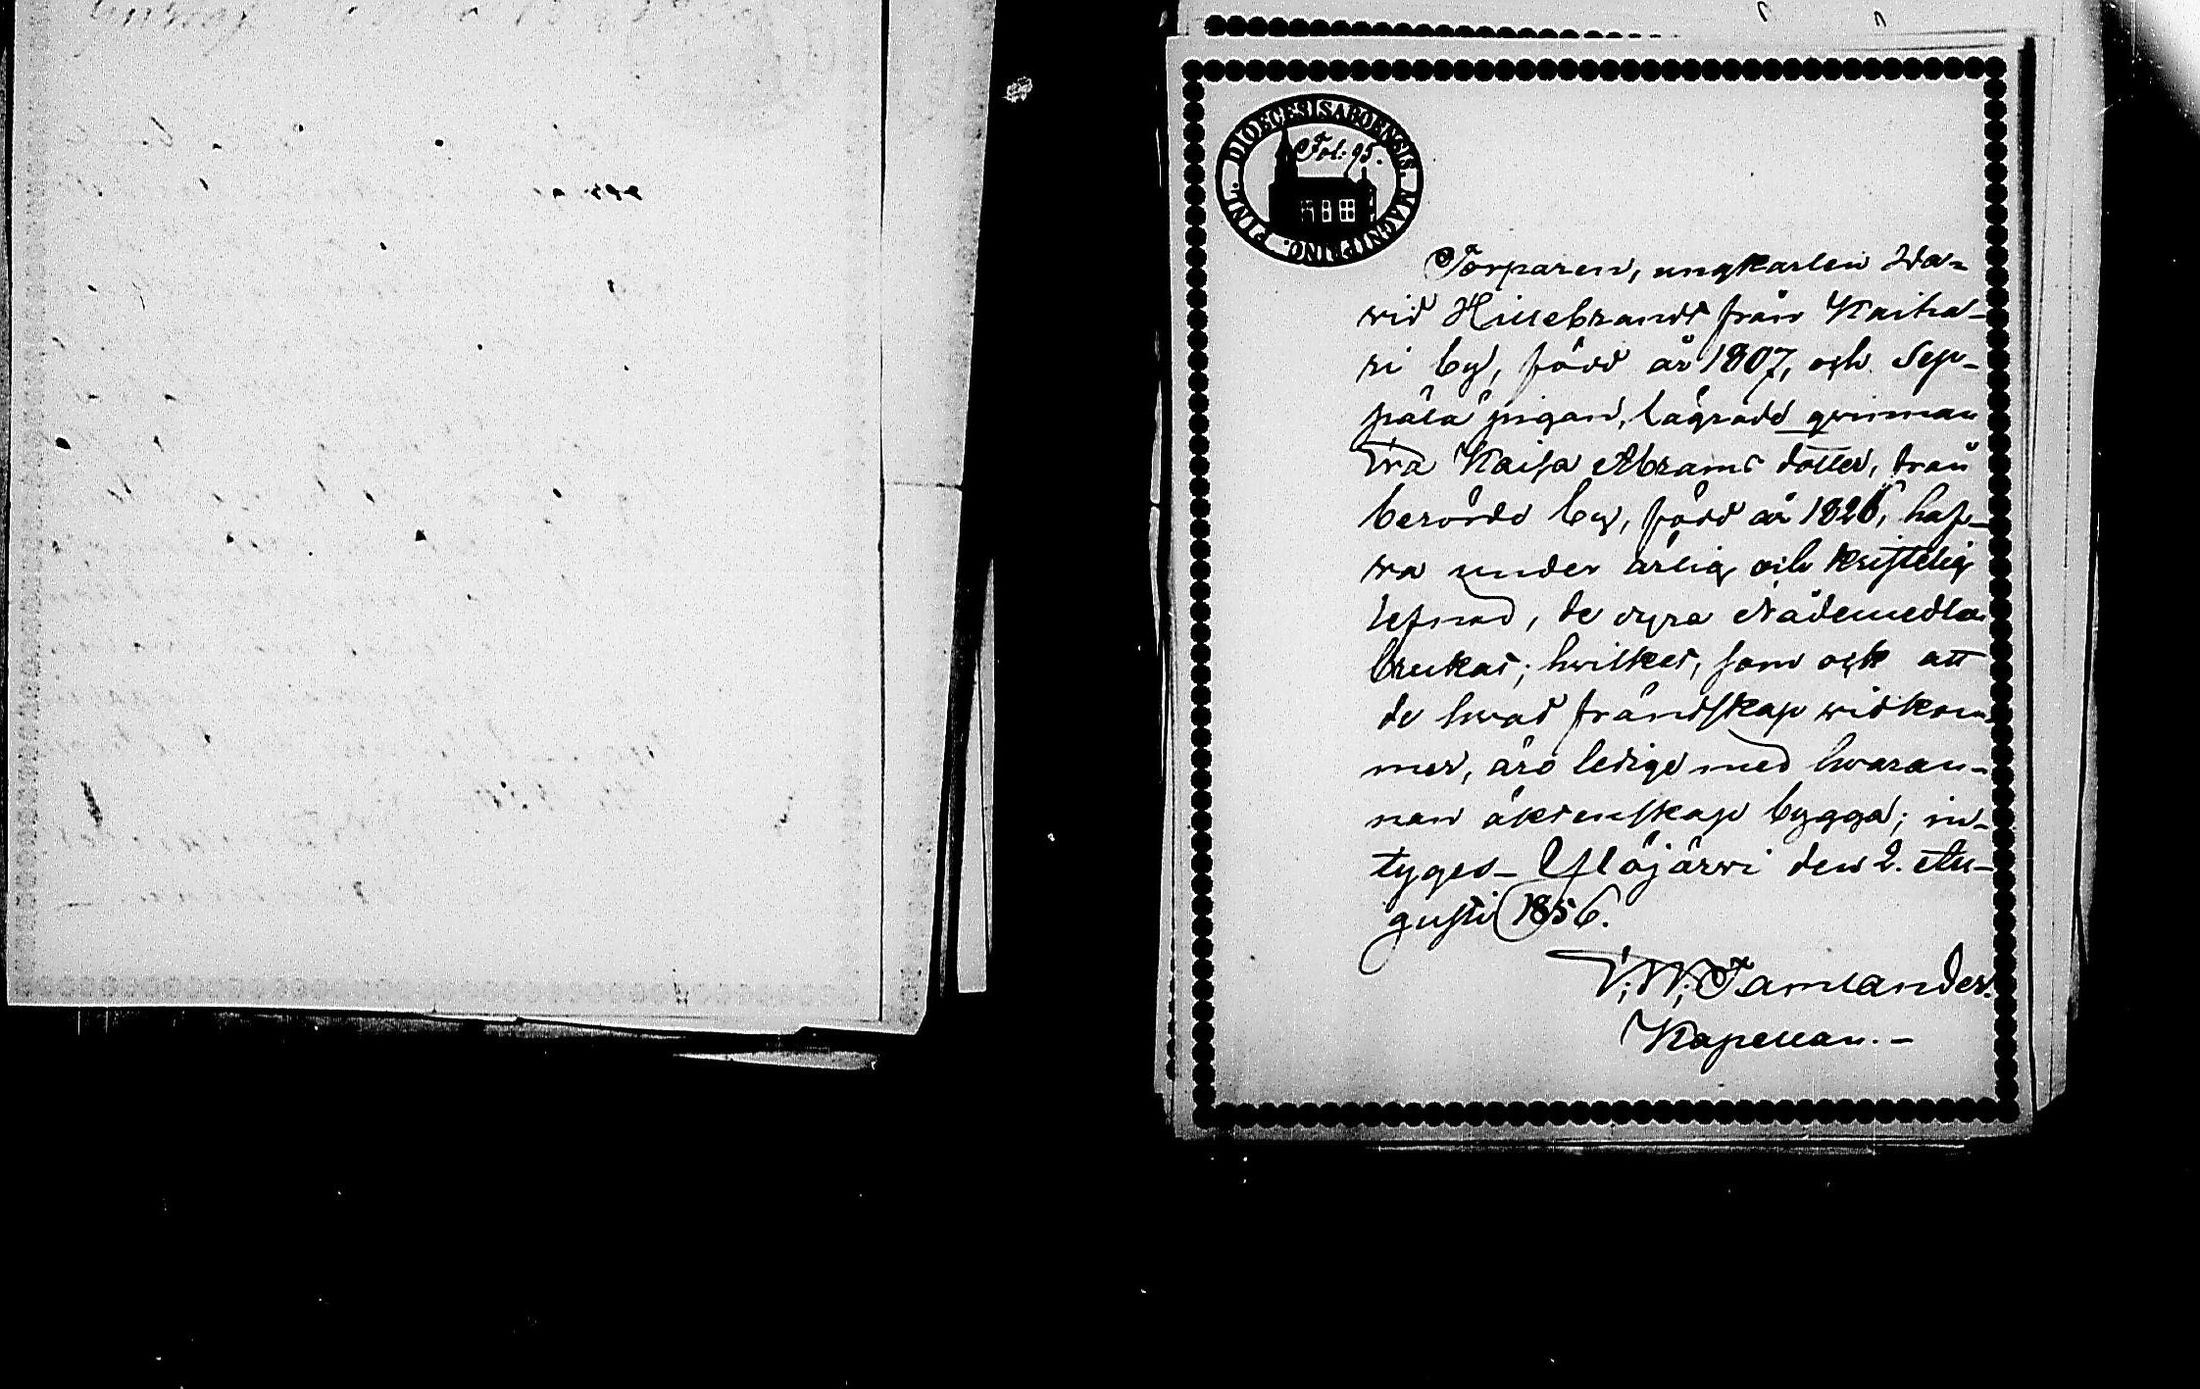 DIOECESIS ABOENSIS. MAGNI PRINC. FINL.
Fol: 95.
Torparen, ungkarlen Da-
vid Hillebrandt från Kaiha-
ri by, född år 1807, och Sep-
pälä pigan, lägrade qvinnan
Kaisa Abrams dotter, från
berörde by, född år 1826, haf-
va under ärlig och kristelig
lefnad, de dyra Nådemedlen
brukat; hvilket, som ock att
de hvad frändskap widkom-
mer, äro ledige med hvaran-
nan äktenskap bygga; in-
tygas_ Ylöjärvi den 2. Au-
gusti 1856.
Tamlander.
Kapellan.-